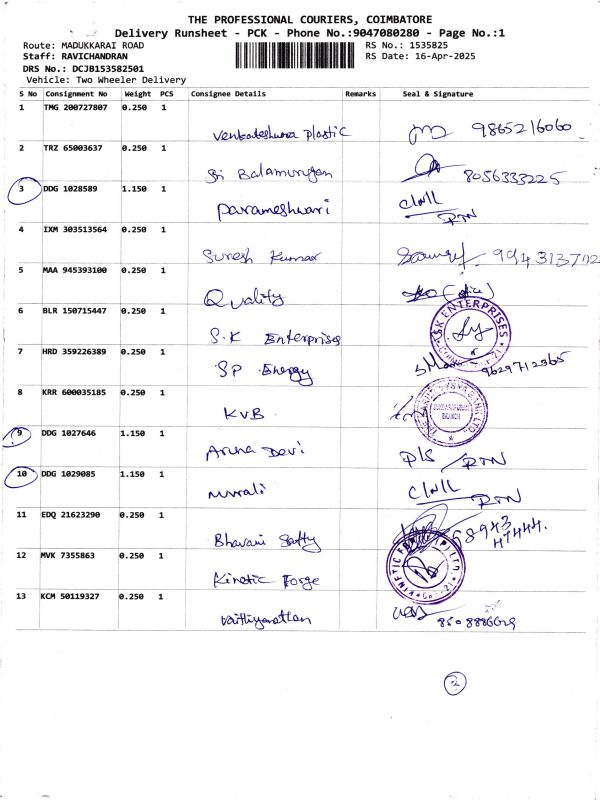 THE PROFESSIONAL COURIERS, COIMBATORE
Delivery Runsheet - PCK - Phone No.:9047080280 - Page No.:1
Route: MADUKKARAI ROAD RS No.: 1535825
Staff: RAVICHANDRAN RS Date: 16-Apr-2025
DRS No.: DCJB153582501
Vehicle: Two Wheeler Delivery
S No Consignment No Weight PCS Consignee Details Remarks Seal & Signature
1 TMG 200727807 0.250 1
Venkateshwara Plastic 9865216060
2 TRZ 65003637 0.250 1
Sri Balamurugan 8056333225
3 DDG 1028589 1.150 1
Parameshwari RTN
4 IXM 303513564 0.250 1
Suresh Kumar
5 MAA 945393100 0.250 1
Quality (office)
6 BLR 150715447 0.250 1
S.K Enterprises SK ENTERPRISES
7 HRD 359226389 0.250 1
SP Energy 9629712365
8 KRR 600035185 0.250 1
KVB
9 DDG 1027646 1.150 1
Aruna Devi D/S /RTN
10 DDG 1029085 1.150 1
Murali RTN
11 EDQ 21623290 0.250 1
Bhavani
12 MVK 7355863 0.250 1
Kinetic Forge KINETIC FORGE (P) LTD.
13 KCM 50119327 0.250 1
2